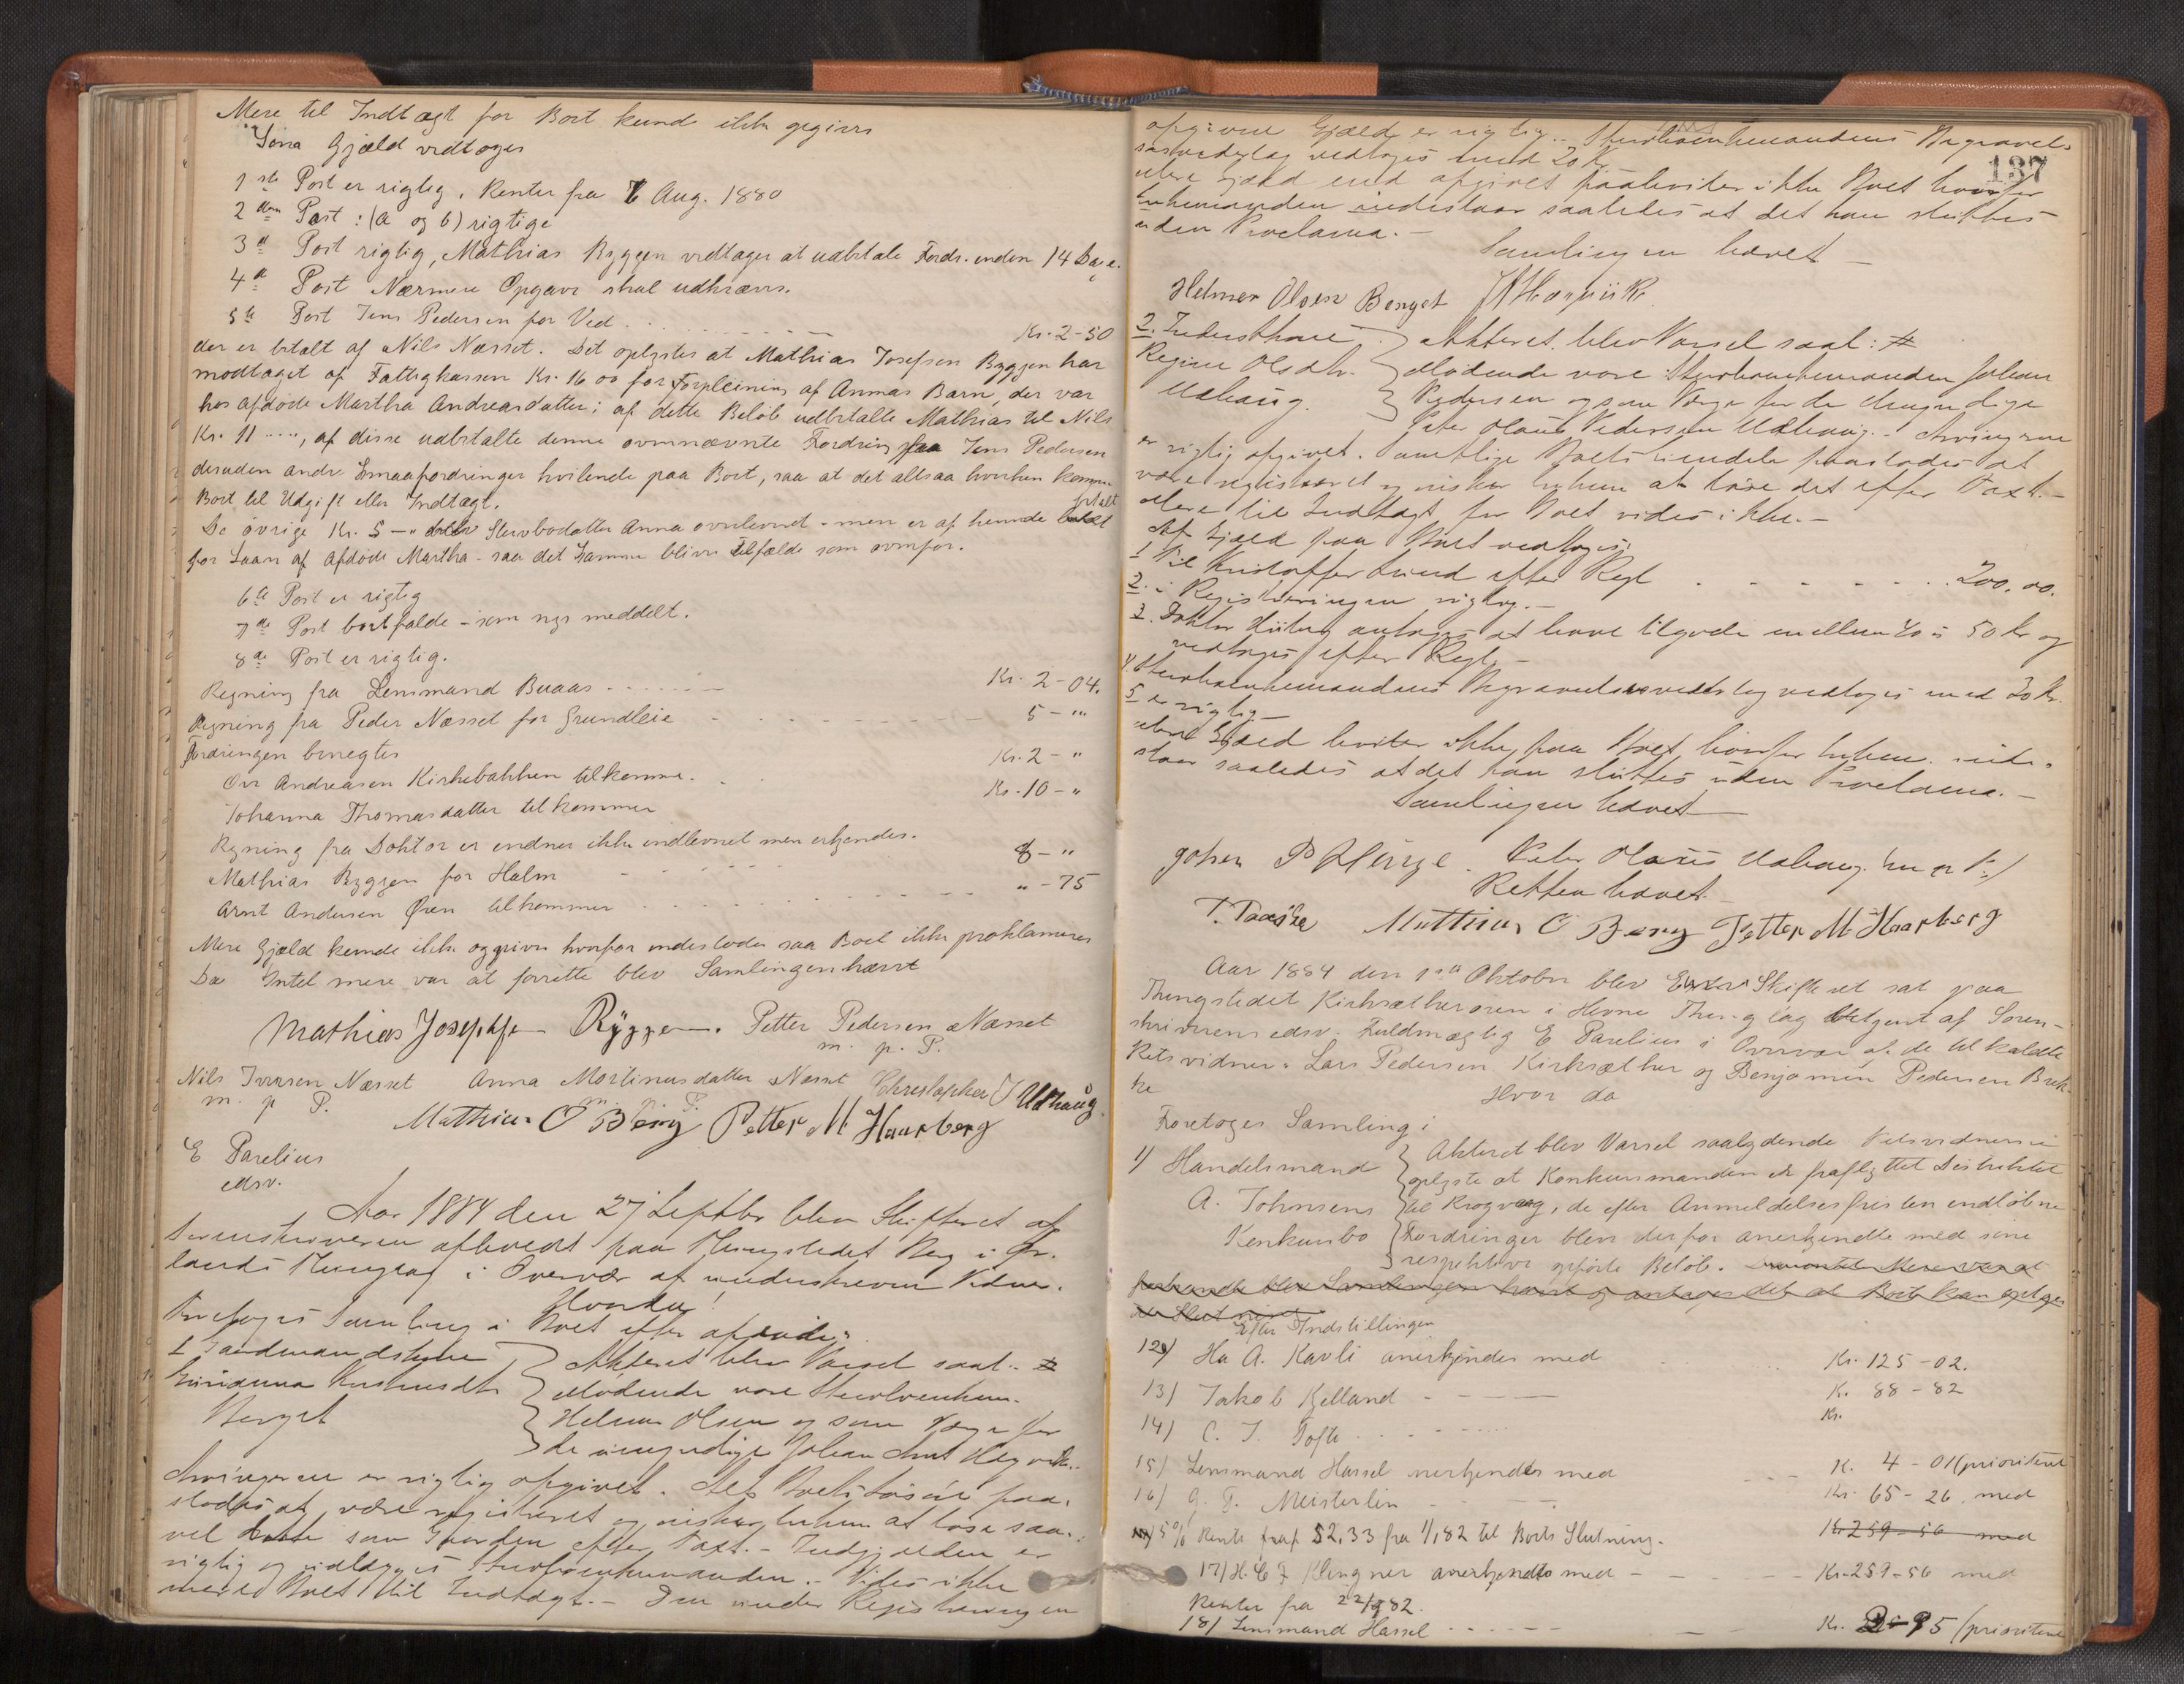 Mere til Indtægt for Boet kunde ikke opgives
Som Gjæld vedtoges
1ste Post er rigtig. Renter fra 7 Aug. 1880
2den Post: (a og b) rigtige
3d Post rigtig, Mathias Ryggen vedtager at udbetale Fordr. inden 14 Dage.
4de Post Nærmere Opgave skal udkræves.
5te Post Jens Pedersen for Ved . . . . . Kr. 2-50
der er betalt af Nils Næsset. Det oplystes at Mathias Josefsen Ryggen har
modtaget af Fattigkassen Kr. 16 00 for Forpleining af Annas Barn, der var
hos afdøde Martha Andreasdatter; af dette Beløb udbetalte Mathias til Nils
Kr. 11 ...., af disse udbetalte denne ovennævnte Fordring fra Jens Pedersen
desuden andre Smaafordringer hvilende paa Boet, saa at det altsaa hverken kommer
Boet til Udgift eller Indtægt.
De øvrige Kr. 5 - " blev Stervbodatter Anna overleveret - men er af hende betalt
for Laan af Afdøde Martha - saa det Samme bliver Tilfælde som ovenfor.
6te Post er rigtig
7de Post bortfalde - som nys meddelt.
8de Post er rigtig.
Regning fra Lensmand Buaas . . . . . Kr. 2-04.
Regning fra Peder Næsset for Grundleie - - - - 5 - "
Fordringen benegtes
Ove Andreasen Kirkebakken tilkomme. Kr. 2 - "
Johanna Thomasdatter tilkommer Kr. 10 - "
Regning fra Doktor er endnu ikke indleveret men erkjendes.
Mathias Ryggen for Halm - - - 8 - "
Arnt Andersen Øren tilkommer . . . . . " - 75
Mere Gjæld kunde ikke opgives hvorfor indestodes saa Boet ikke proklameres
Da Intet mere var at forrette blev Samlingen hævet
Mathias Josephsen Ryggen. Petter Pedersen Næsset
m. p. P.
Nils Iversen Næsset Anna Mortinusdatter Næsset Christopher J Udhaug.
m. p. P. m. p. P.
Mathias O Berg Petter M Haarberg
E Parelius
edsv.
Aar 1884 den 27 Septbr blev Skifteret af
Sorenskriveren afholdt paa Thingstedet Berg i Ør-
lands Thinglag i Overvær af underskrevne Vidner.
Hvorda!
Foretoges Samling i Boet efter afdøde:
1 Gaardmandskone } Akteret blev Varsel saal. #
Berget } Mødende vare Stervboenkem.
} Helmer Olsen og som Værge for
} de umyndige Johan Arnt
Arvingerne er rigtig opgivet. Alt Boets Løsøre paa-
stodes at være registreret og ønsker Enkem. at løse saa-
vel dette som Gaarden efter Taxt. - Indgjælden er
rigtig og Stervboenkemanden. - Vides ikke
mere Boet til Indtægt. - Den under Registreringen
137
opgivne Gjæld er rigtig. Stervboenkemandens Begravel-
sesvederlag vedtoges med 20 Kr.
Mere Gjæld end opgivet paahviler ikke Boet hvorfor
Enkemanden indestaar saaledes at det kan sluttes
uden Proclama. -
Samlingen hævet -
Helmer Olsen Berget
2. Inderstkone } Akteret blev Varsel saal: #
Regine Olsdtr. } Mødende vare Stervboenkemanden Johan
Udhaug. } Pedersen og som Værge for de Umyndige
Peter Olaus Pedersen Udhaug. - Arvingerne
er rigtig opgivet. Samtlige Boets Eiendele paastodes at
være registreret og ønsker Enkem. at løse det efter Taxt. -
Mere til Indtægt for Boet vides ikke. -
Af Gjæld paa Boet vedtoges:
1 Til Kristoffer Lund efter Regl - - - - - 200.00.
2. i Registreringen rigtig. -
3. Doktor antages at have tilgode mellem 40 à 50 Kr og
vedtoges efter Regl. -
4. Stervboenkemandens Begravelsesvederlag vedtoges med 20 Kr.
5 er rigtig -
Mere Gjæld hviler ikke paa Boet, hvorfor Enkem. inde-
staar saaledes at det kan sluttes uden Proclama. -
Samlingen hævet -
Johan P Hauge. Peter Olaus Udhaug. (m p P.)
Retten hævet.
Mathias O Berg Petter M Haarberg
Aar 1884 den 1ste Oktober blev Extra Skifteret sat paa
Thingstedet Kirksæterøren i Hevne Thinglag betjent af Soren-
skriverens edsv. Fuldmægtig E Parelius i Overvær af de tilkaldte
Retsvidner: Lars Pedersen Kirksæther og Benjamin Pedersen Bræk-
ke
Hvor da
Foretoges Samling i
1/ Handelsmand } Akteret blev Varsel saalydende Retsvidnerne
A. Johnsens } oplyste at Konkursmanden er fraflyttet Distriktet
Konkursbo } til Krogvaag, de efter Anmeldelsesfristen indløbne
} Fordringer blev derfor anerkjendte med sine
} respektive opførte Beløb. Mere var at
forhandle blev Samlingen hævet og antages det at Boet kan optages
der Slutning
Efter Indstillingen
12/ Ha A. Kavli anerkjendes med Kr. 125-02.
13/ Jakob Kjelland - - - - K. 88-82
14/ C. J. Tofte . . . . . Kr.
15/ Lensmand Hassel anerkjendes med - - - K. 4-01 (prioritent
16/ G. T. Meisterlin - - - Kr. 65-26 med
5% Rente fraf 52,33 fra 1/1 82 til Boets Slutning. Kr 259-56 med
17/ H. C. J. Klingner anerkjendtes med - - - - Kr. 259-56 med
Renter fra 22/9 82.
18/ Lensmand Hassel . . . . . - - Kr. 2-95 (prioritent